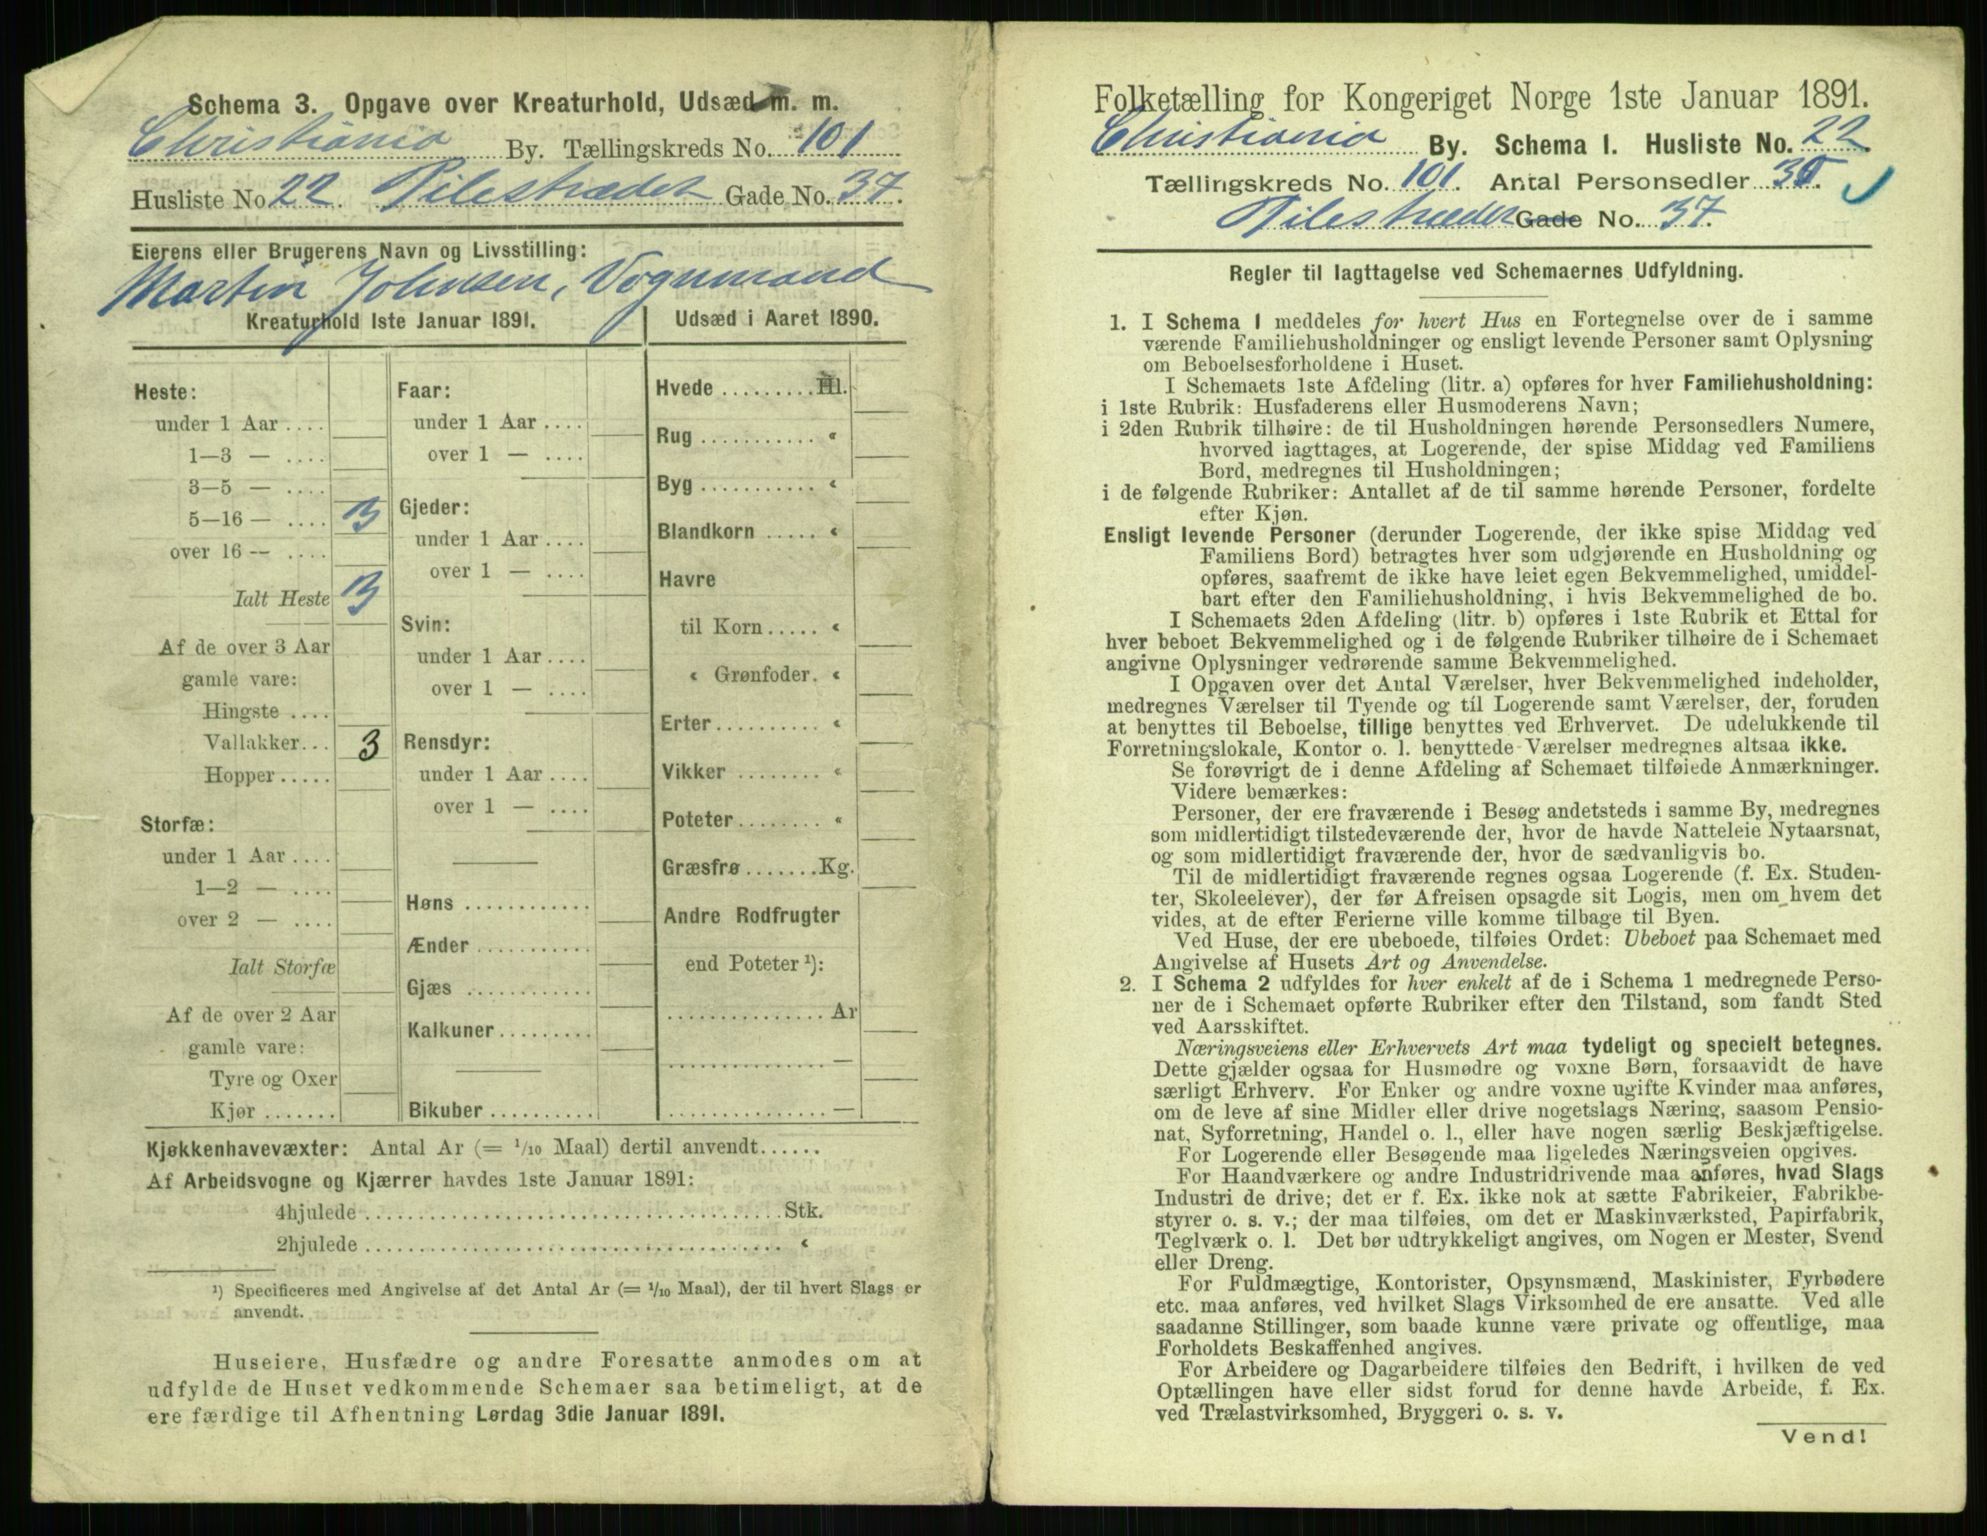 Schema 3. Opgave over Kreaturhold, Udsæd m. m.
Christiania By. Tællingskreds No. 101
Husliste No. 22. Pilestrædet Gade No. 37.
Eierens eller Brugerens Navn og Livsstilling:
Martin Johnsen, Vognmand
Kreaturhold 1ste Januar 1891.
Heste:
under 1 Aar ....
1—3 — ....
3—5 — ....
5—16 — .... 3
over 16 — ....
Ialt Heste 3
Af de over 3 Aar
gamle vare:
Hingste ....
Vallakker... 3
Hopper.....
Storfæ:
under 1 Aar ....
1—2 — ....
over 2 — ....
Ialt Storfæ
Af de over 2 Aar
gamle vare:
Tyre og Oxer
Kjør .......
Faar:
under 1 Aar ....
over 1 — ....
Gjeder:
under 1 Aar ....
over 1 — ....
Svin:
under 1 Aar ....
over 1 — ....
Rensdyr:
under 1 Aar ....
over 1 — ....
Høns ............
Ænder ...........
Gjæs ............
Kalkuner .........
Bikuber ..........
Udsæd i Aaret 1890.
Hvede ......... Hl.
Rug ........... «
Byg ........... «
Blandkorn ..... «
Havre
til Korn..... «
« Grønfoder. «
Erter .......... «
Vikker ........ «
Poteter........ «
Græsfrø .......Kg.
Andre Rodfrugter
end Poteter ¹):
............... Ar
............... —
............... —
Kjøkkenhavevæxter: Antal Ar (= 1/10 Maal) dertil anvendt......
Af Arbeidsvogne og Kjærrer havdes 1ste Januar 1891:
4hjulede ........................................ Stk.
2hjulede ........................................ «
¹) Specificeres med Angivelse af det Antal Ar (= 1/10 Maal), der til hvert Slags er
anvendt.
Huseiere, Husfædre og andre Foresatte anmodes om at
udfylde de Huset vedkommende Schemaer saa betimeligt, at de
ere færdige til Afhentning Lørdag 3die Januar 1891.
Folketælling for Kongeriget Norge 1ste Januar 1891.
Christiania By. Schema I. Husliste No. 22
Tællingskreds No. 101. Antal Personsedler
Pilestrædet Gade No. 37.
Regler til Iagttagelse ved Schemaernes Udfyldning.
1. I Schema 1 meddeles for hvert Hus en Fortegnelse over de i samme
værende Familiehusholdninger og ensligt levende Personer samt Oplysning
om Beboelsesforholdene i Huset.
I Schemaets 1ste Afdeling (litr. a) opføres for hver Familiehusholdning:
i 1ste Rubrik: Husfaderens eller Husmoderens Navn;
i 2den Rubrik tilhøire: de til Husholdningen hørende Personsedlers Numere,
hvorved iagttages, at Logerende, der spise Middag ved Familiens
Bord, medregnes til Husholdningen;
i de følgende Rubriker: Antallet af de til samme hørende Personer, fordelte
efter Kjøn.
Ensligt levende Personer (derunder Logerende, der ikke spise Middag ved
Familiens Bord) betragtes hver som udgjørende en Husholdning og
opføres, saafremt de ikke have leiet egen Bekvemmelighed, umiddel-
bart efter den Familiehusholdning, i hvis Bekvemmelighed de bo.
I Schemaets 2den Afdeling (litr. b) opføres i 1ste Rubrik et Ettal for
hver beboet Bekvemmelighed og i de følgende Rubriker tilhøire de i Schemaet
angivne Oplysninger vedrørende samme Bekvemmelighed.
I Opgaven over det Antal Værelser, hver Bekvemmelighed indeholder,
medregnes Værelser til Tyende og til Logerende samt Værelser, der, foruden
at benyttes til Beboelse, tillige benyttes ved Erhvervet. De udelukkende til
Forretningslokale, Kontor o. l. benyttede Værelser medregnes altsaa ikke.
Se forøvrigt de i denne Afdeling af Schemaet tilføiede Anmærkninger.
Videre bemærkes:
Personer, der ere fraværende i Besøg andetsteds i samme By, medregnes
som midlertidigt tilstedeværende der, hvor de havde Natteleie Nytaarsnat,
og som midlertidigt fraværende der, hvor de sædvanligvis bo.
Til de midlertidigt fraværende regnes ogsaa Logerende (f. Ex. Studen-
ter, Skoleelever), der før Afreisen opsagde sit Logis, men om hvem det
vides, at de efter Ferierne ville komme tilbage til Byen.
Ved Huse, der ere ubeboede, tilføies Ordet: Ubeboet paa Schemaet med
Angivelse af Husets Art og Anvendelse.
2. I Schema 2 udfyldes for hver enkelt af de i Schema 1 medregnede Perso-
ner de i Schemaet opførte Rubriker efter den Tilstand, som fandt Sted
ved Aarsskiftet.
Næringsveiens eller Erhvervets Art maa tydeligt og specielt betegnes.
Dette gjælder ogsaa for Husmødre og voxne Børn, forsaavidt de have
særligt Erhverv. For Enker og andre voxne ugifte Kvinder maa anføres,
om de leve af sine Midler eller drive nogetslags Næring, saasom Pensio-
nat, Syforretning, Handel o. l., eller have nogen særlig Beskjæftigelse.
For Logerende eller Besøgende maa ligeledes Næringsveien opgives.
For Haandværkere og andre Industridrivende maa anføres, hvad Slags
Industri de drive; det er f. Ex. ikke nok at sætte Fabrikeier, Fabrikbe-
styrer o. s. v.; der maa tilføies, om det er Maskinværksted, Papirfabrik,
Teglværk o. l. Det bør udtrykkeligt angives, om Nogen er Mester, Svend
eller Dreng.
For Fuldmægtige, Kontorister, Opsynsmænd, Maskinister, Fyrbødere
etc. maa anføres, ved hvilket Slags Virksomhed de ere ansatte. Ved alle
saadanne Stillinger, som baade kunne være private og offentlige, maa
Forholdets Beskaffenhed angives.
For Arbeidere og Dagarbeidere tilføies den Bedrift, i hvilken de ved
Optællingen have eller sidst forud for denne havde Arbeide, f. Ex.
ved Trælastvirksomhed, Bryggeri o. s. v.
Vend!